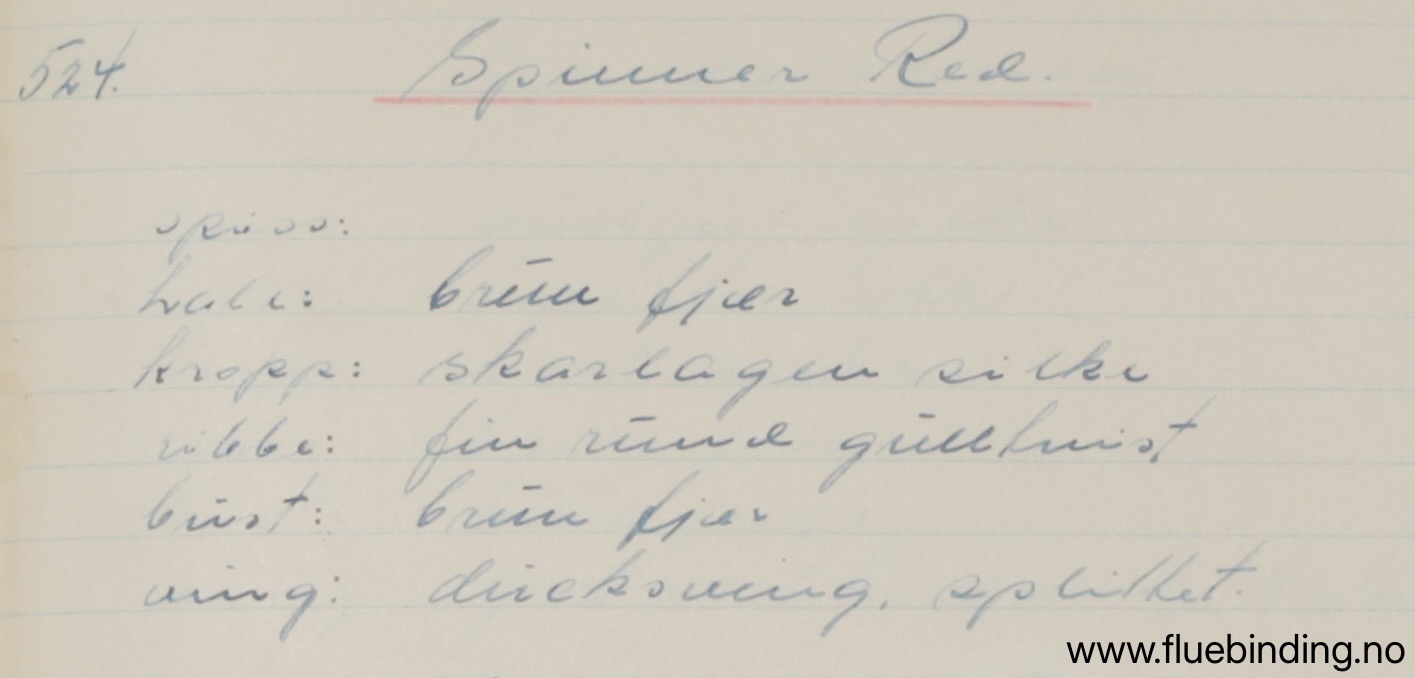 524. Spinner Red.
spiss:
hale: brun fjær
kropp: skarlagen silke
ribbe: fin rund gulltvist
bust: brun fjær
ving: ducksving, splittet.
www.fluebinding.no